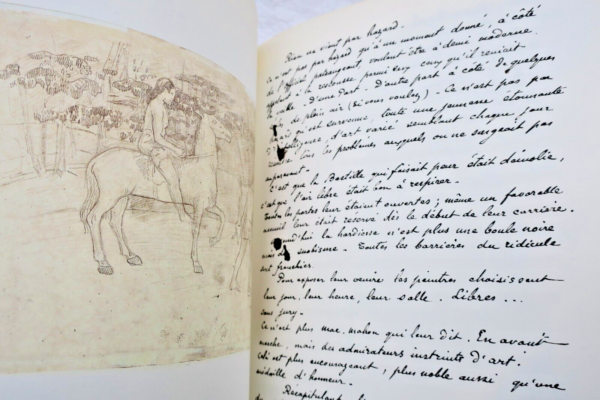 Rien n'est par hazard.
Ce n'est pas par hazard qu'à un moment donné, à côté
de l'officiel paraissant, voulant être à demi moderne.
à la rescousse parmi eux ceux qu'il réunit
salle. D'une part. D'autre part à côté de quelques
de plein air (si vous voulez) - Ce n'est pas par
qu'est survenue, toute une jeunesse étonnante
d'intelligence d'art varié semblant chaque jour
tous les problèmes auxquels on ne songeait pas
auparavant.
C'est que la Bastille qui faisait peur était démolie,
c'est que l'air libre était bon à respirer.
Toutes les portes leur étaient ouvertes; même un favorable
accueil leur était réservé dès le début de leur carrière.
la hardiesse n'est plus une boule noire
mais du snobisme - Toutes les barrières du ridicule
sont franchies.
Pour exposer leur oeuvre les peintres choisissent
leur jour, leur heure, leur salle. Libres...
sans jury.
Ce n'est plus mac-mahon qui leur dit. En avant
marche, mais des admirateurs instruits d'art.
Cela est plus encourageant, plus noble aussi qu'une
médaille d'honneur.
Récapitulant